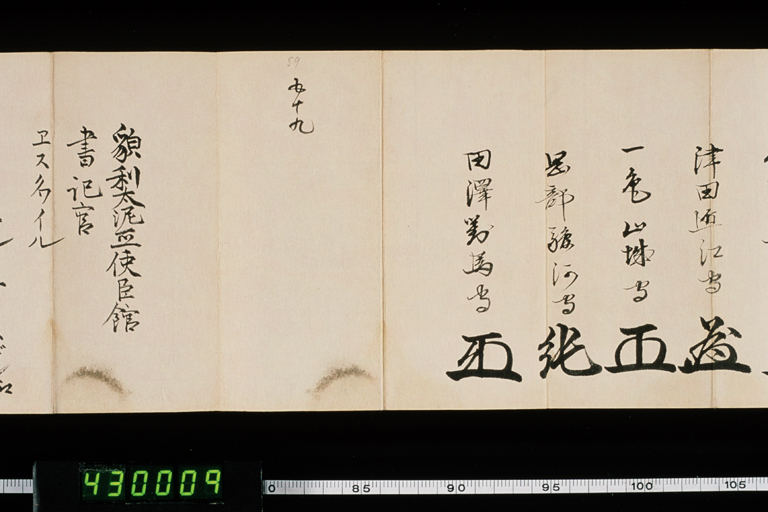 津田近江守
一色山城守
岡部駿河守
田澤對馬守
59
五十九
貌利太泥亜使臣館
書記官
ヱスクワイル
430009
0 85 90 95 100 105